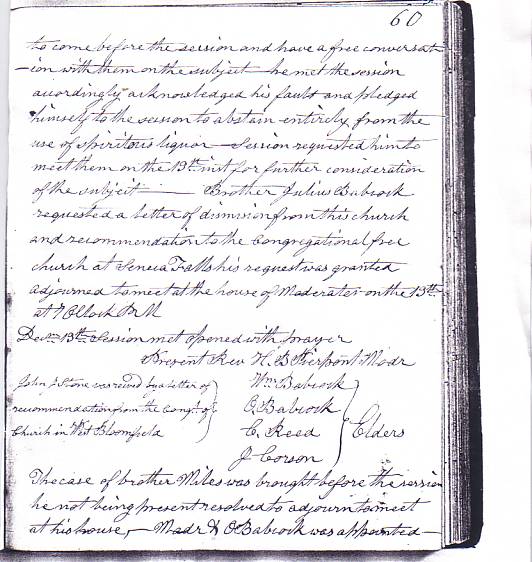 60
to come before the session and have a free conversat
-ion with them on the subject — he met the session
accordingly acknowledged his fault and pledged
himself to the session to abstain entirely from the
use of spiritous liquor — Session requested him to
meet them on the 13th inst for further consideration
of the subject — Brother Julius Babcock
requested a letter of dismission from this church
and recommendation to the Congregational free
church at Seneca Falls his request was granted
adjourned to meet at the house of Moderator on the 13th
at 7 Oclock P.M
Decm 13th Session met opened with prayer
Present Rev H. B Pierpont Modr
John J Stone was recived by a letter of
recommendation from the Congl. of
Church in West Bloomfield
Wm Babcock
O. Babcock
C. Reed
J Corson
Elders
The case of brother Miles was brought before the session
he not being present resolved to adjourn to meet
at his house, — Modr & O Babcock was appointed —